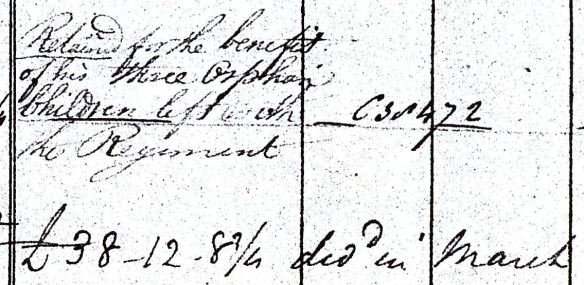 Retained for the benefit
of his three Orphan
Children left with C38472
the Regiment
£38-12-8¾ died in March